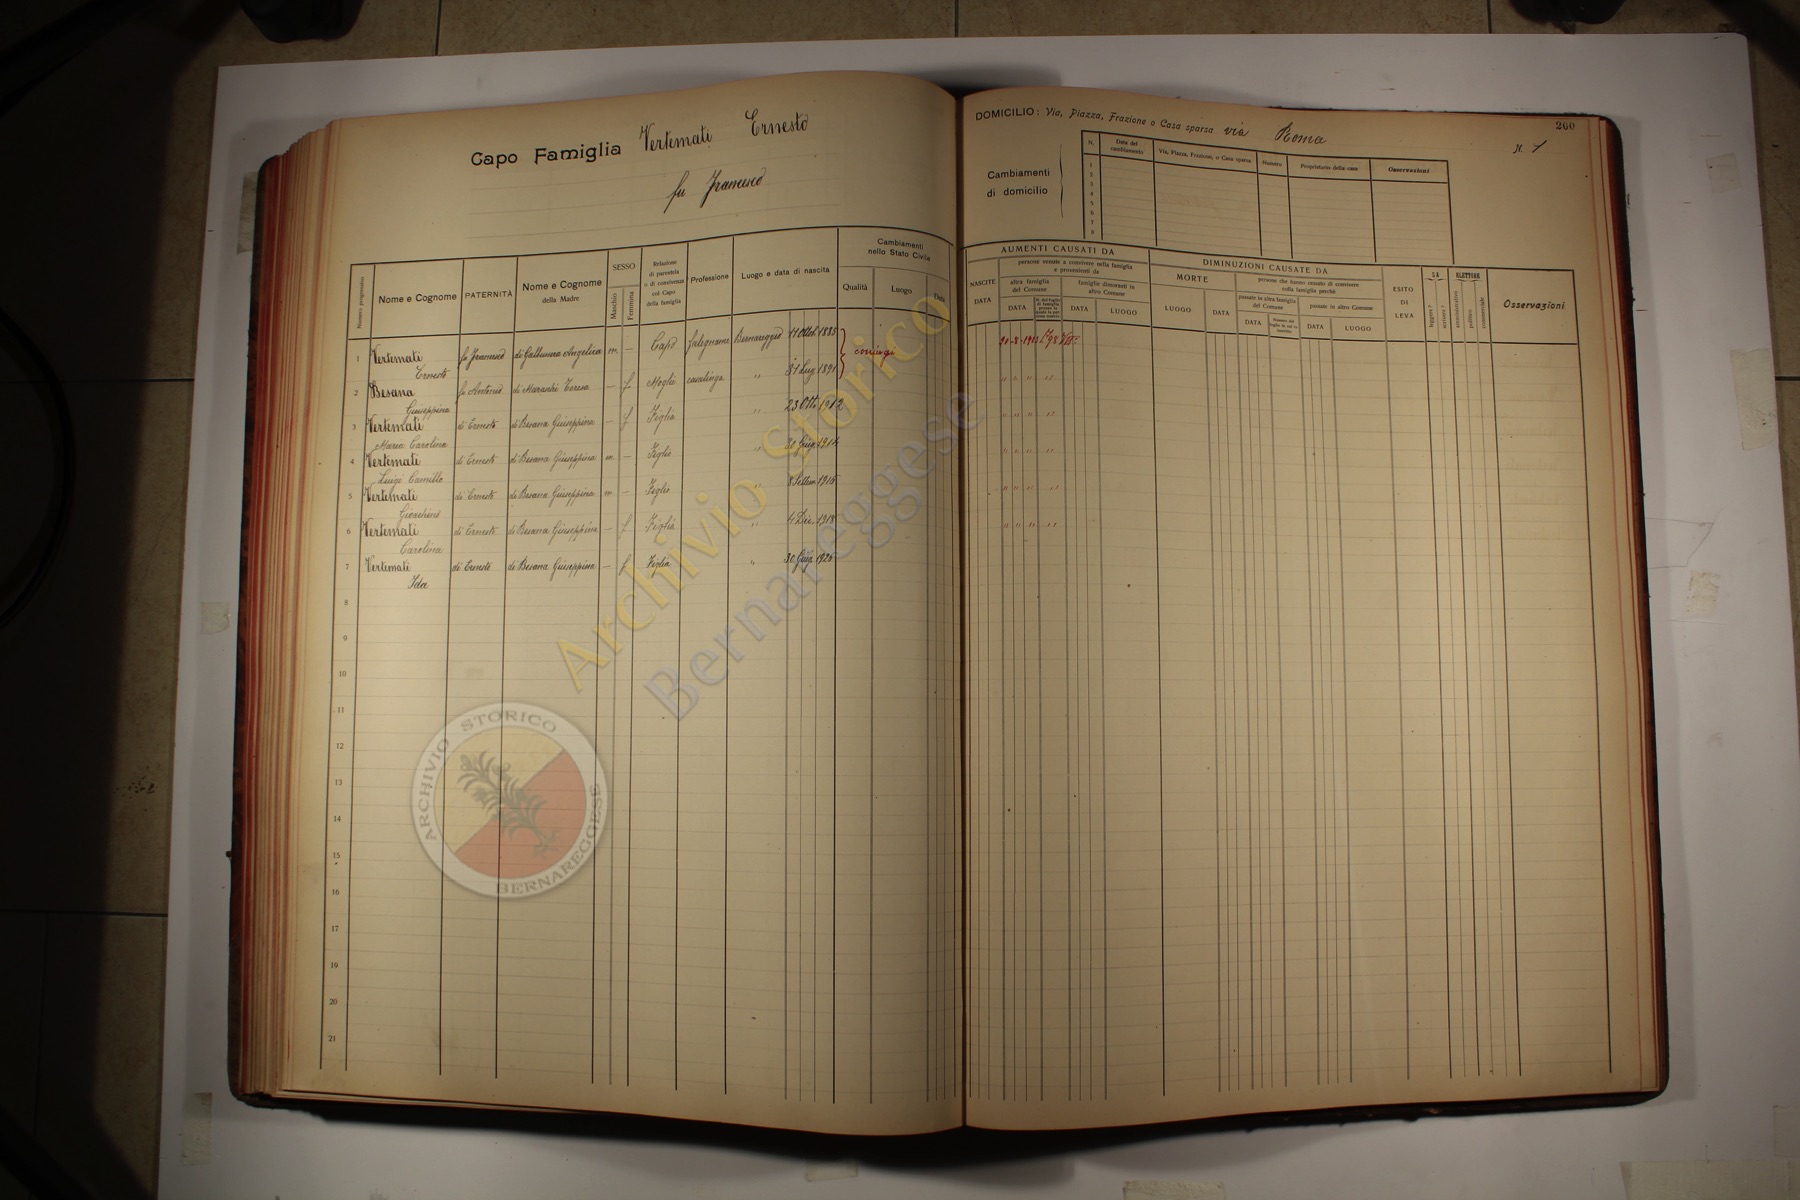 Capo Famiglia Vertemati Ernesto
fu Francesco
DOMICILIO: Via, Piazza, Frazione o Casa sparsa via Roma
N. 1
260
Cambiamenti
di domicilio
N.
Data del
cambiamento
Via, Piazza, Frazione, o Casa sparsa
Numero
Proprietario della casa
Osservazioni
1
2
3
4
5
6
7
8
Numero progressivo
Nome e Cognome
PATERNITÀ
Nome e Cognome
della Madre
SESSO
Maschio
Femmina
Relazione
di parentela
o di convivenza
col Capo
della famiglia
Professione
Luogo e data di nascita
Cambiamenti
nello Stato Civile
Qualità
Luogo
Data
AUMENTI CAUSATI DA
NASCITE
DATA
persone venute a convivere nella famiglia
e provenienti da
altra famiglia
del Comune
DATA
famiglie dimoranti in
altro Comune
DATA
LUOGO
DIMINUZIONI CAUSATE DA
MORTE
LUOGO
DATA
persone che hanno cessato di convivere
colla famiglia perchè
passate in altra famiglia
del Comune
DATA
passate in altro Comune
DATA
LUOGO
ESITO
DI
LEVA
SA
leggere?
scrivere?
ELETTORE
amministrativo
politico
commerciale
Osservazioni
1 Vertemati fu Francesco di Angelica m – Capo falegname Bernareggio 11 Ott. 1885 coniugi
Ernesto
2 Besana fu Antonio di Teresa – f Moglie casalinga " 31 Lug 1891
Giuseppina
3 Vertemati di Ernesto di Besana Giuseppina – f Figlia " 23 Ott. 1912
Maria Carolina
4 Vertemati di Ernesto di Besana Giuseppina m – Figlio " 20 Giug 1914
Luigi Camillo
5 Vertemati di Ernesto di Besana Giuseppina m – Figlio "
6 Vertemati di Ernesto di Besana Giuseppina – f Figlia " 4 Dic. 1918
Carolina
7 Vertemati di Ernesto di Besana Giuseppina – f Figlia "
Ida
8
9
10
11
12
13
14
15
16
17
18
19
20
21
Archivio Storico
Bernareggese
ARCHIVIO STORICO
BERNAREGGESE